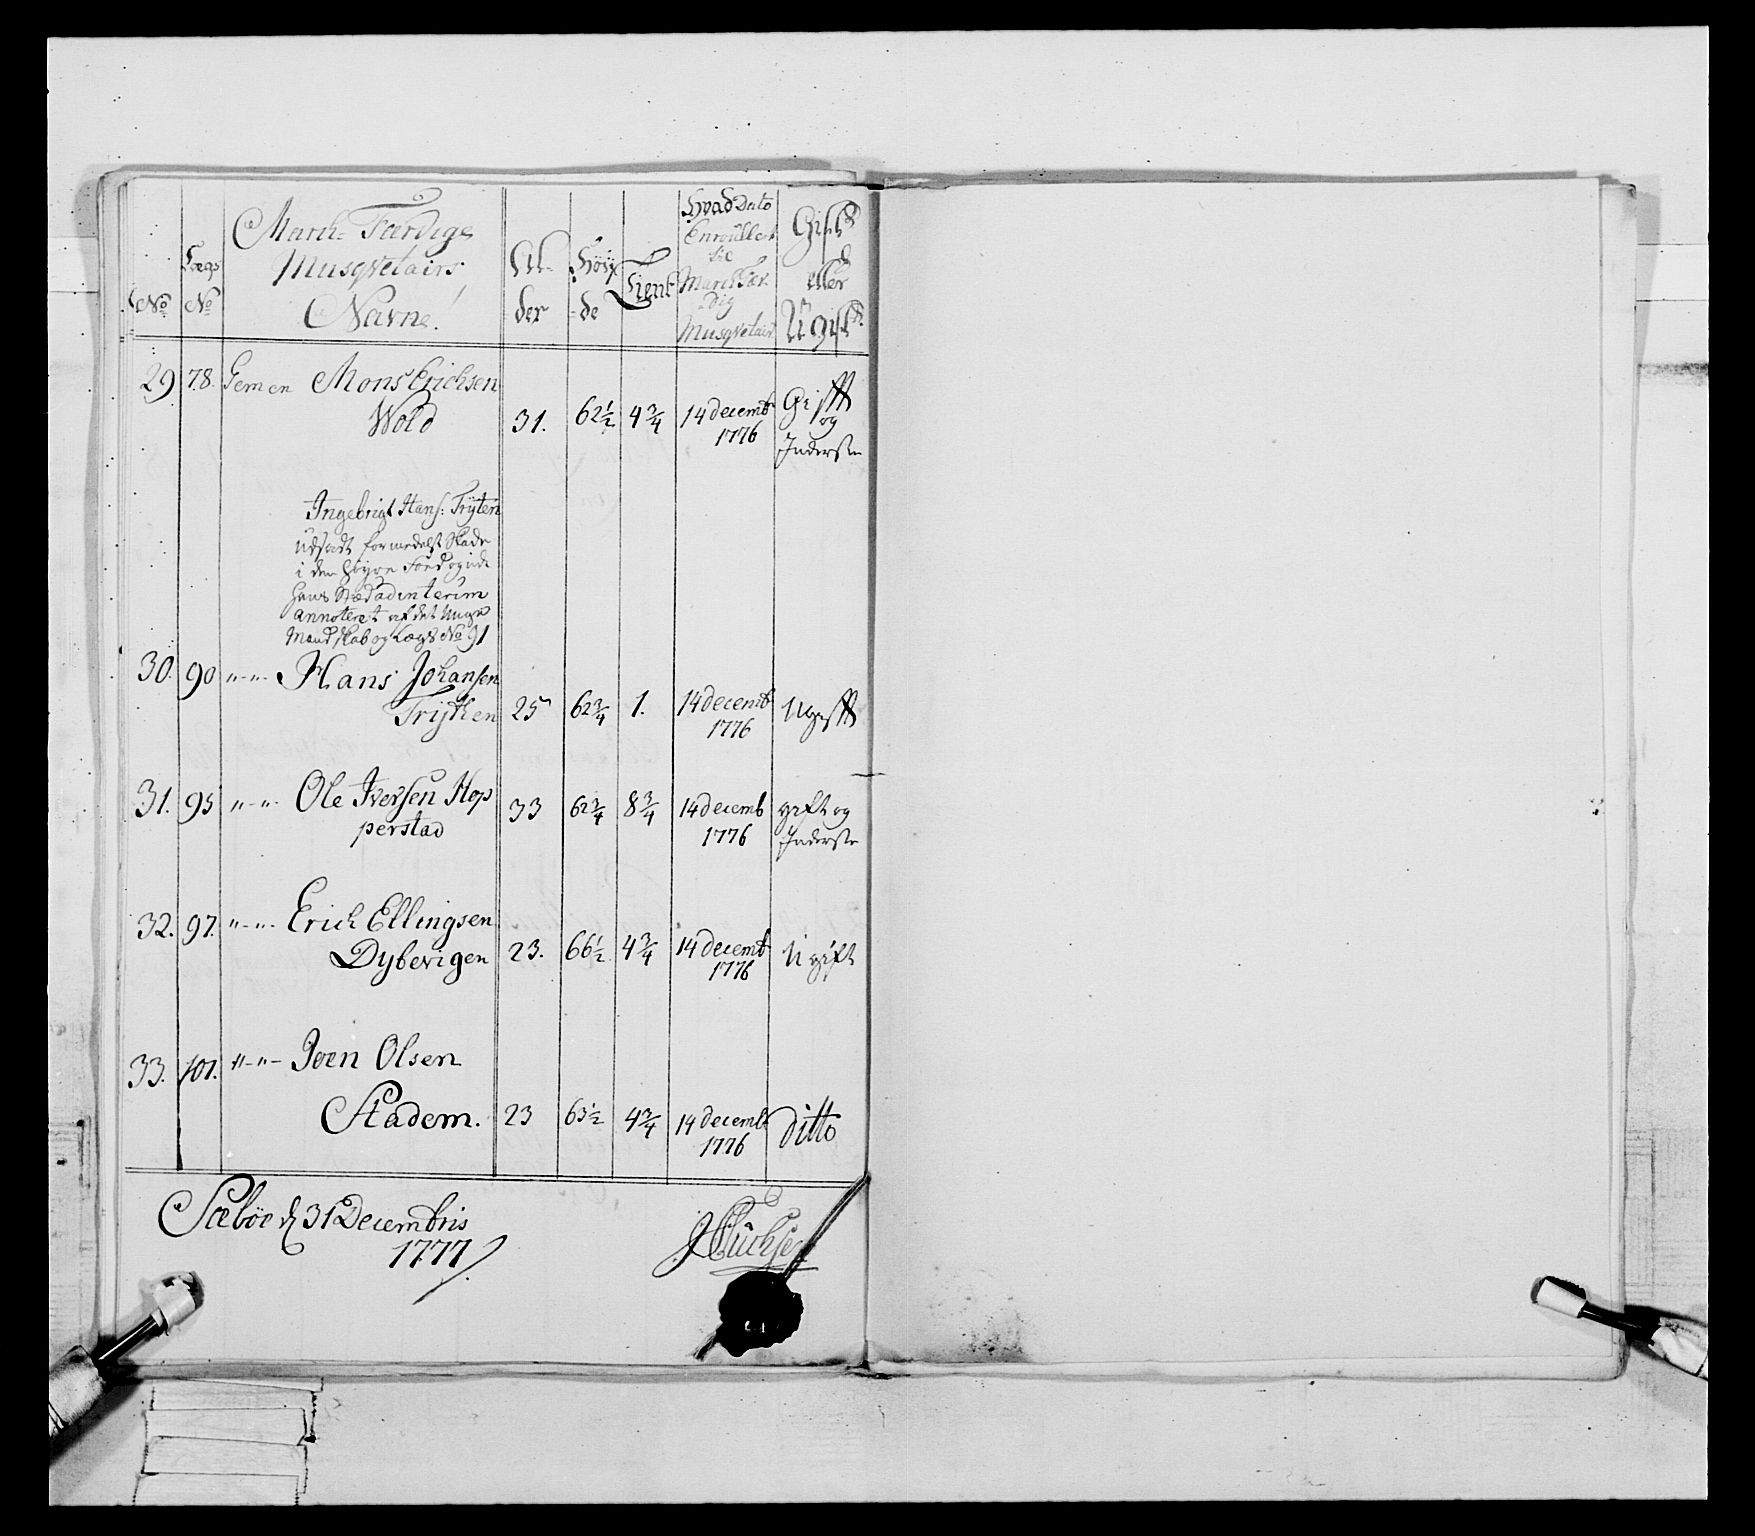 No
Lægs No
March-Færdige
Musqvetairs
Navne!
Al-
der
Høy-
de
Tient
Hvad Dato
Enroullert
til
March Fær-
dig
Musqvetair
Gift
eller
Ugift
29 78. Gemen Mons Erichsen
Wold 31. 62½ 4¾ 14 decemb 1776 Gifft og Inderste
Ingebrigt Hans: Trÿten
udsadt formedelst Skade
i den høyre Foed og udi
hans Stæd ad interim
annoteret af det unge
Mandskab og Lægs No 91
30. 90 "-"- Hans Johansen
Trÿtten 25 62¾ 1. 14 decemb 1776 Ugifft
31. 95 "-"- Ole Iversen Hop
perstad 33 62¾ 8¾ 14 decemb 1776 gift og Inderste
32. 97. "-"- Erich Ellingsen
Dybevigen 23. 66½ 4¾ 14 decemb 1776 Ugift
33. 101. "-"- Joen Olsen
Stadem. 23 63½ 4¾ 14 decemb 1776 ditto
Sæbøe d 31 Decembris
1777